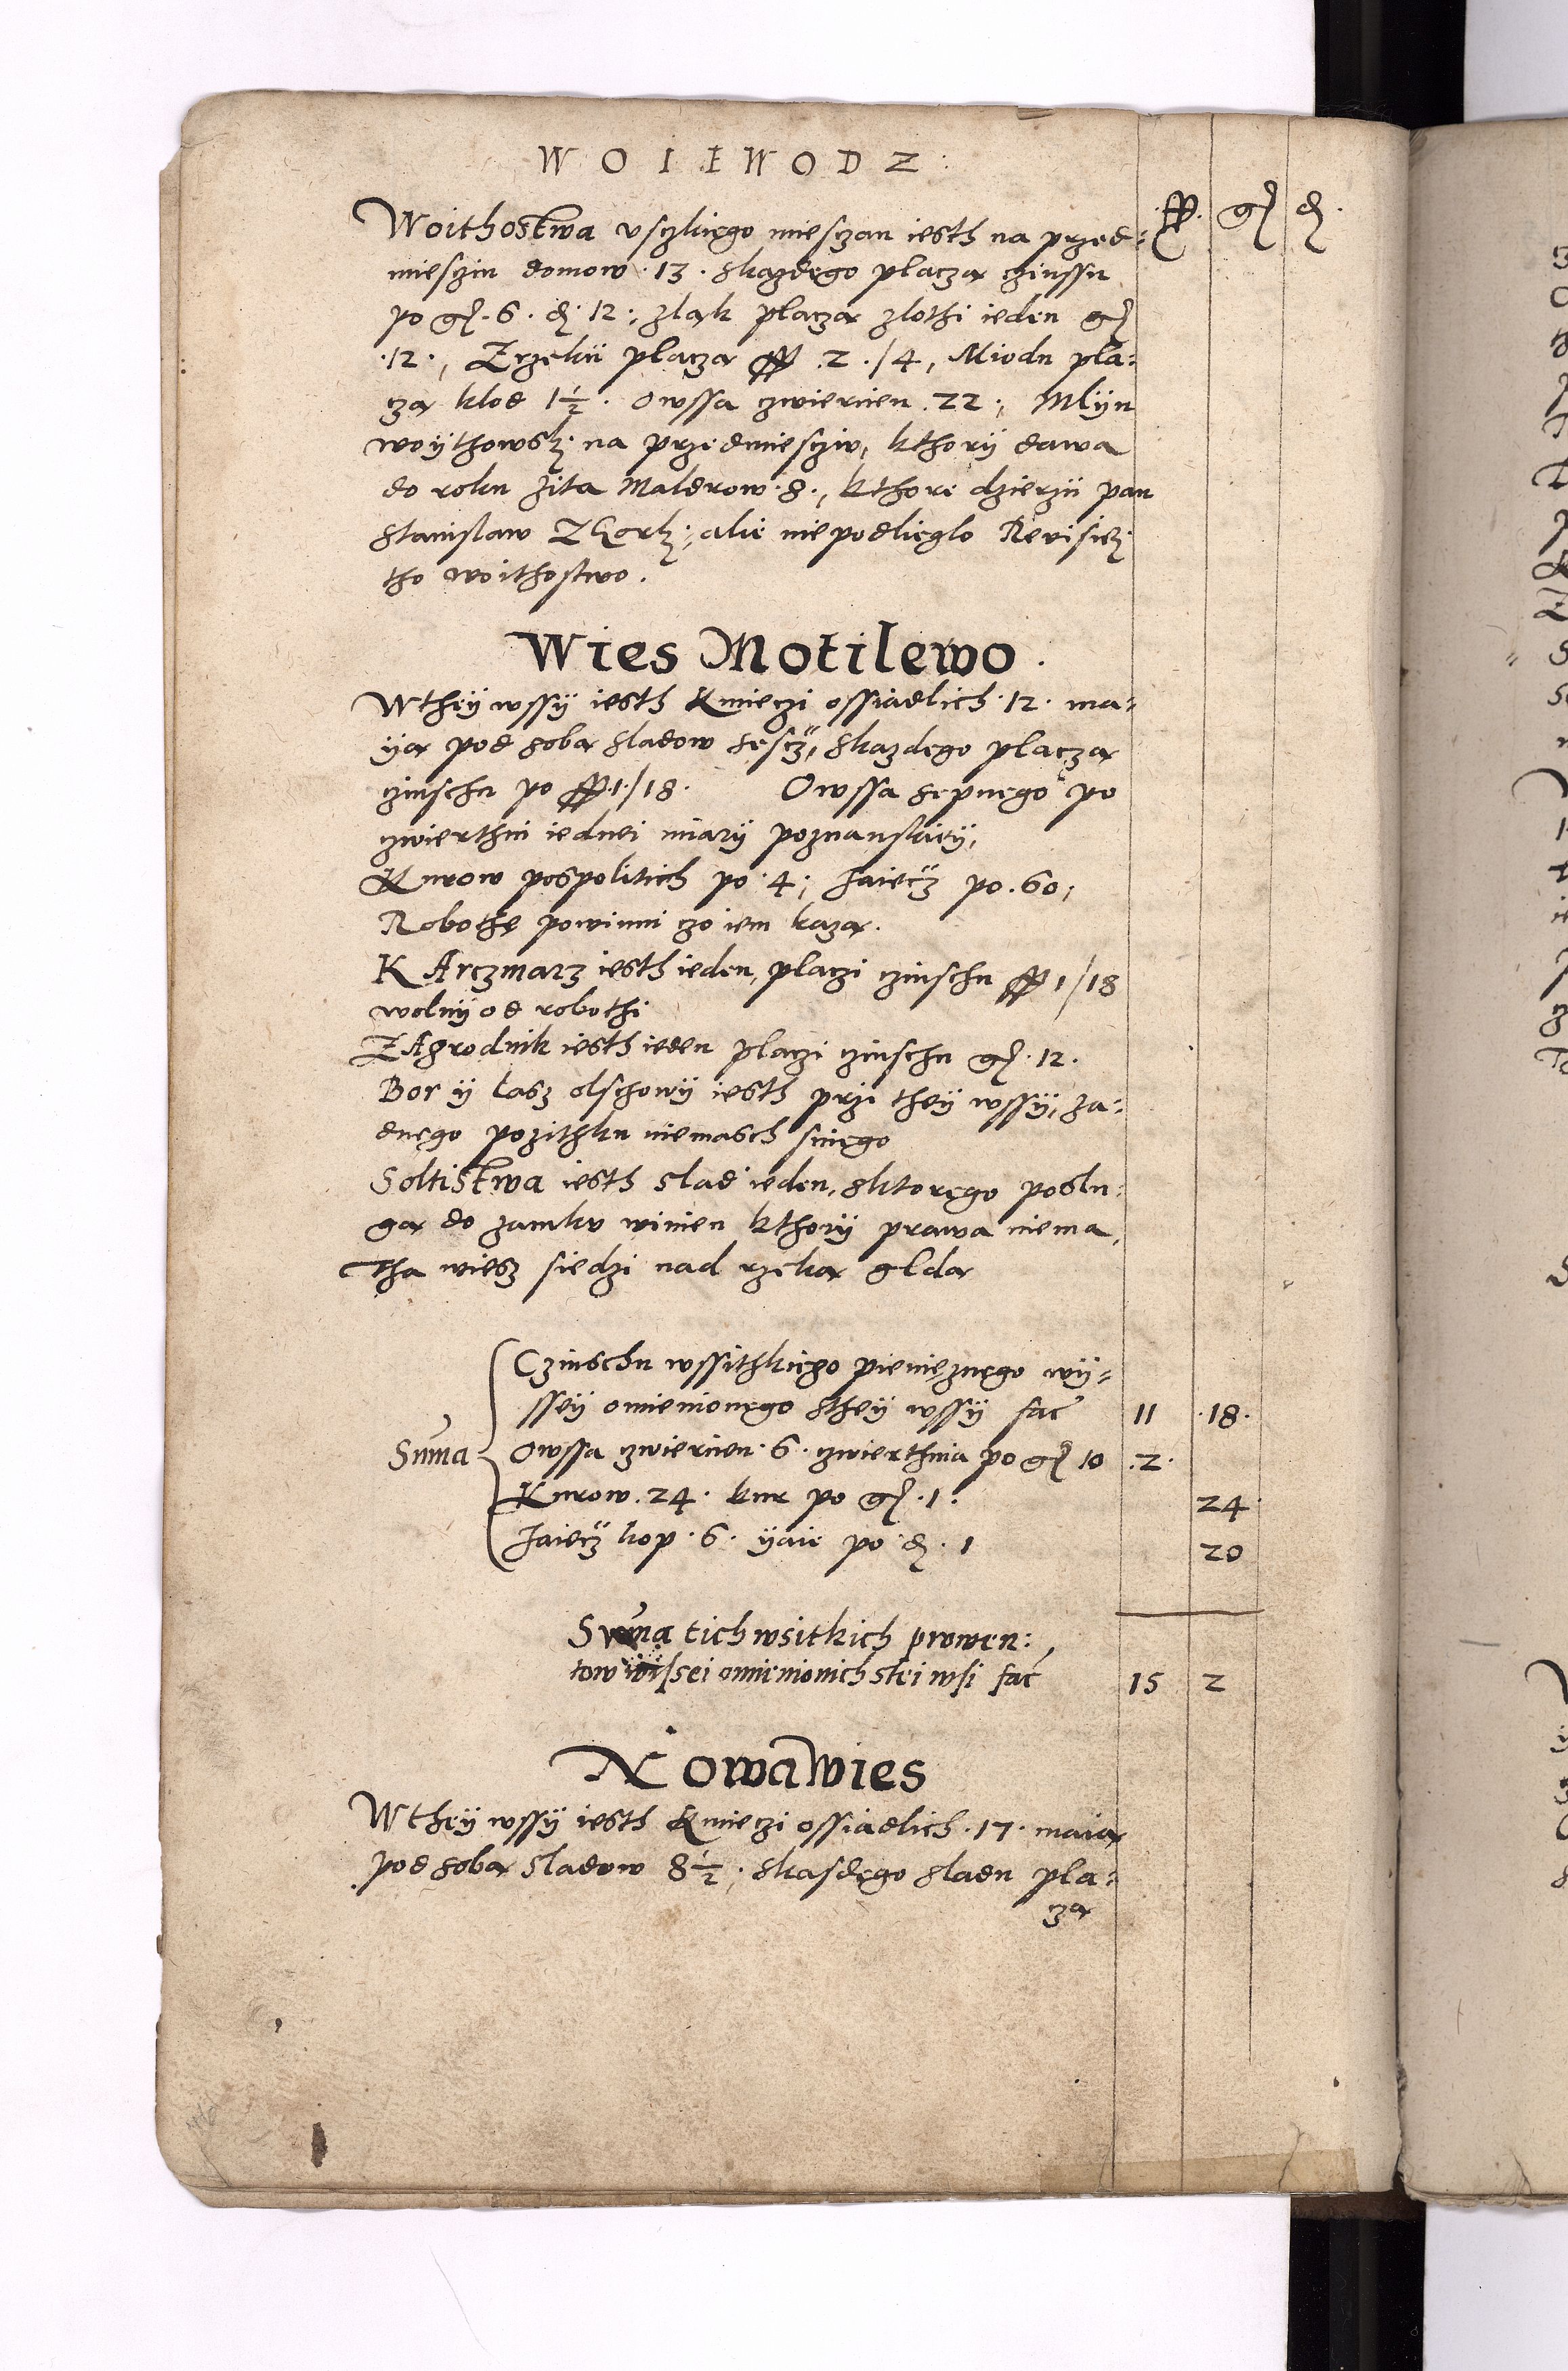 WOIEWODZ:
ff. gſ ₰.
Woithostwa uszkiego miesczan iesth na przed:
miesziu domow .13. skazdego placza czinssu
po gſ. 6. ₰. 12., zląk placza zlothi ieden gſ
.12., Zrzekii placza ff .2./4, Miodu pla:
cza klod 1½. owssa czwiercien .22., Mlÿn
woÿthowsk: na przedmiesziu, kthorÿ dawa
do roku zita Maldrow .8., kthore dzierzii pan
Stanislaw Zhork:, alie niepodlieglo Revisiei
tho woithostwo.
Wies Motilewo.
Wtheÿ wssÿ iesth Kmieczi ossiadlich .12. ma=
ya pod soba sladow sescz, skazdego placza
czinschu po ff .1./18. Owssa sepnego po
czwierthni iednei miarÿ poznanskieÿ,
Kurow pospolitich po .4., Jaiecz po .60,
Robothę powinni czo iem kaza.
KArczmarz iesth ieden, placzi czinschu ff 1/18
wolnÿ od robothi
ZAgrodnik iesth ieden placzi czinschu gſ .12.
Bor ÿ Lasz olschowÿ iesth przi theÿ wssÿ, za:
dnego pozithku niemasch sniego
Soltistwa iesth slad ieden, sktorego poslu:
ga do zamku winien kthorÿ prawa niema,
Tha wiesz siedzi nad rzeka glda
Czinschu wssithkiego pienieznego wÿ=
sseÿ omienionego stheÿ wssÿ fac 11 .18.
Suma
Owssa czwiercien .6. czwierthnia po gſ 10 .2.
Kurow .24. kur po gſ .1. 24
Jaiecz kop .6. ÿaie po ₰. 1 20
Suma tich wsitkich prowen:
tow wissei omienionich stei wsi fac 15 2
Nowawies
Wtheÿ wssÿ iesth Kmieczi ossiadlich .17. maia
pod soba sladow 8½, skasdego sladu pla:
cza